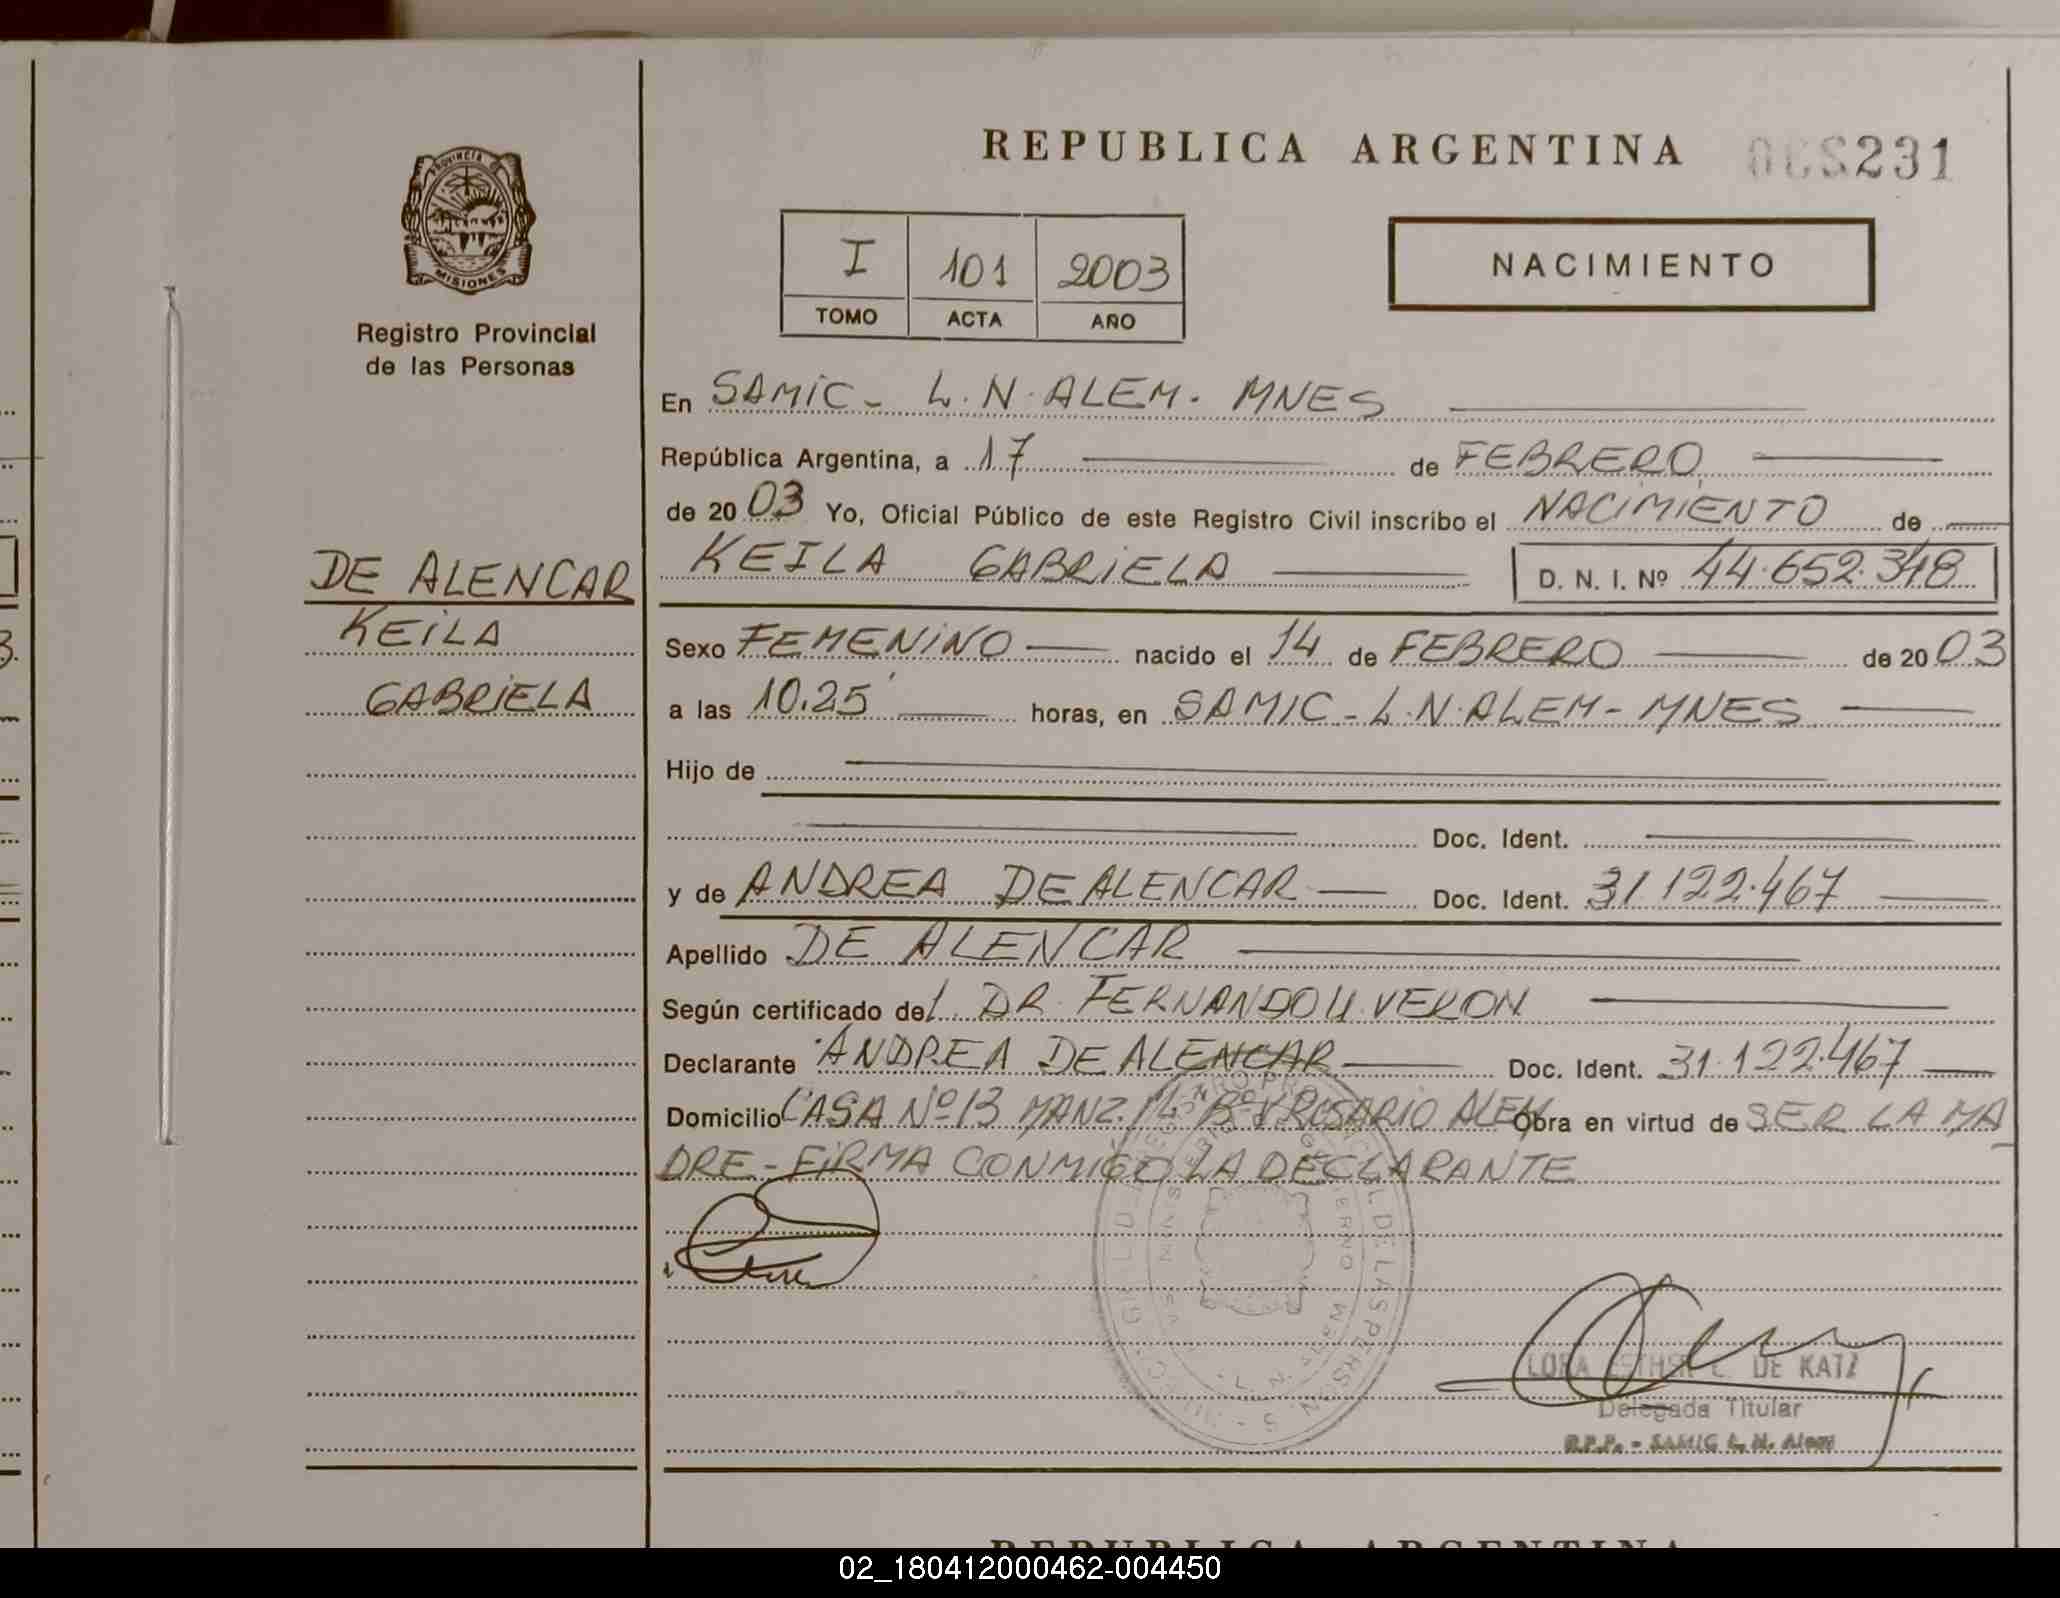 REPUBLICA ARGENTINA
231
PROVINCIA
MISIONES
Registro Provincial
de las Personas
I 101 2003
TOMO ACTA AÑO
NACIMIENTO
En SAMIC - L.N. ALEM. MNES
República Argentina, a 17 de FEBRERO
de 2003 Yo, Oficial Público de este Registro Civil inscribo el NACIMIENTO de
KEILA GABRIELA D. N. I. Nº 44.652.348
DE ALENCAR
KEILA
GABRIELA
Sexo FEMENINO nacido el 14 de FEBRERO de 2003
a las 10.25' horas, en SAMIC - L.N. ALEM - MNES
Hijo de
Doc. Ident.
y de ANDREA DE ALENCAR Doc. Ident. 31.122.467
Apellido DE ALENCAR
Según certificado del DR. FERNANDO U. VERON
Declarante ANDREA DE ALENCAR Doc. Ident. 31.122.467
Domicilio CASA Nº 13 MANZ. Bº V ROSARIO ALEM Obra en virtud de SER LA MA
DRE - FIRMA CONMIGO LA DECLARANTE
DE KATZ
Delegada Titular
R.P.P. - SAMIC L. N. Alem
REPUBLICA ARGENTINA
02_180412000462-004450